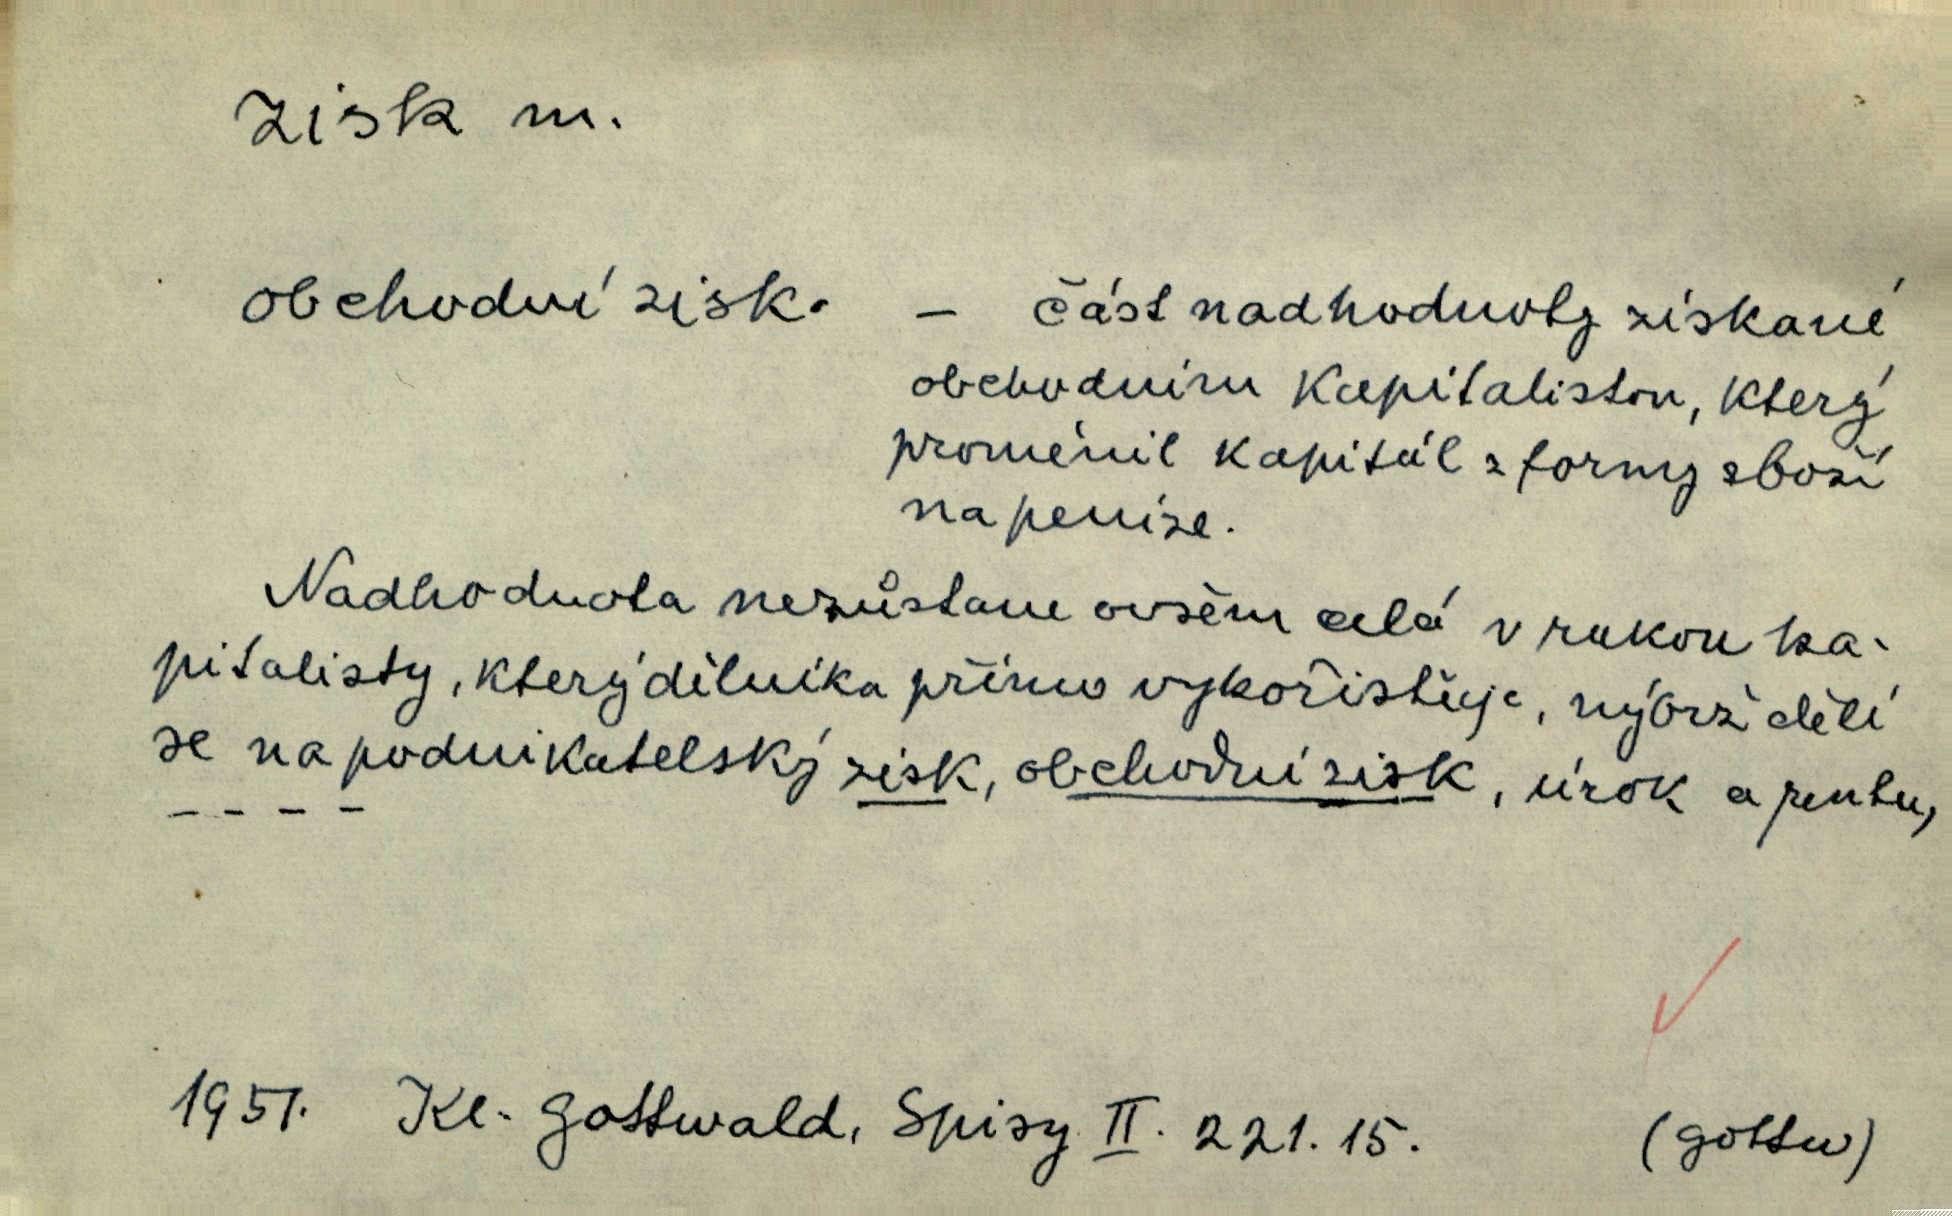 zisk m.
obchodní zisk. – část nadhodnoty získané
obchodním kapitalistou, který
proměnil kapitál z formy zboží
na peníze.
Nadhodnota nezůstane ovšem celá v rukou ka-
pitalisty, který dělníka přímo vykořisťuje, nýbrž dělí
se na podnikatelský zisk, obchodní zisk, úrok a rentu,
- - - -
1951. Kl. Gottwald, Spisy II. 221. 15. (gottw)